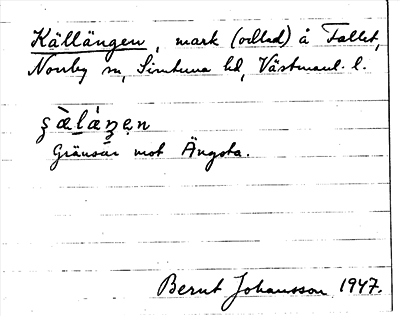 Källängen, mark (odlad) å Fallet,
Norrby sn, Simtuna hd, Västmanl. l.
Gränsar mot Ängsta.
Bernt Johansson 1947.